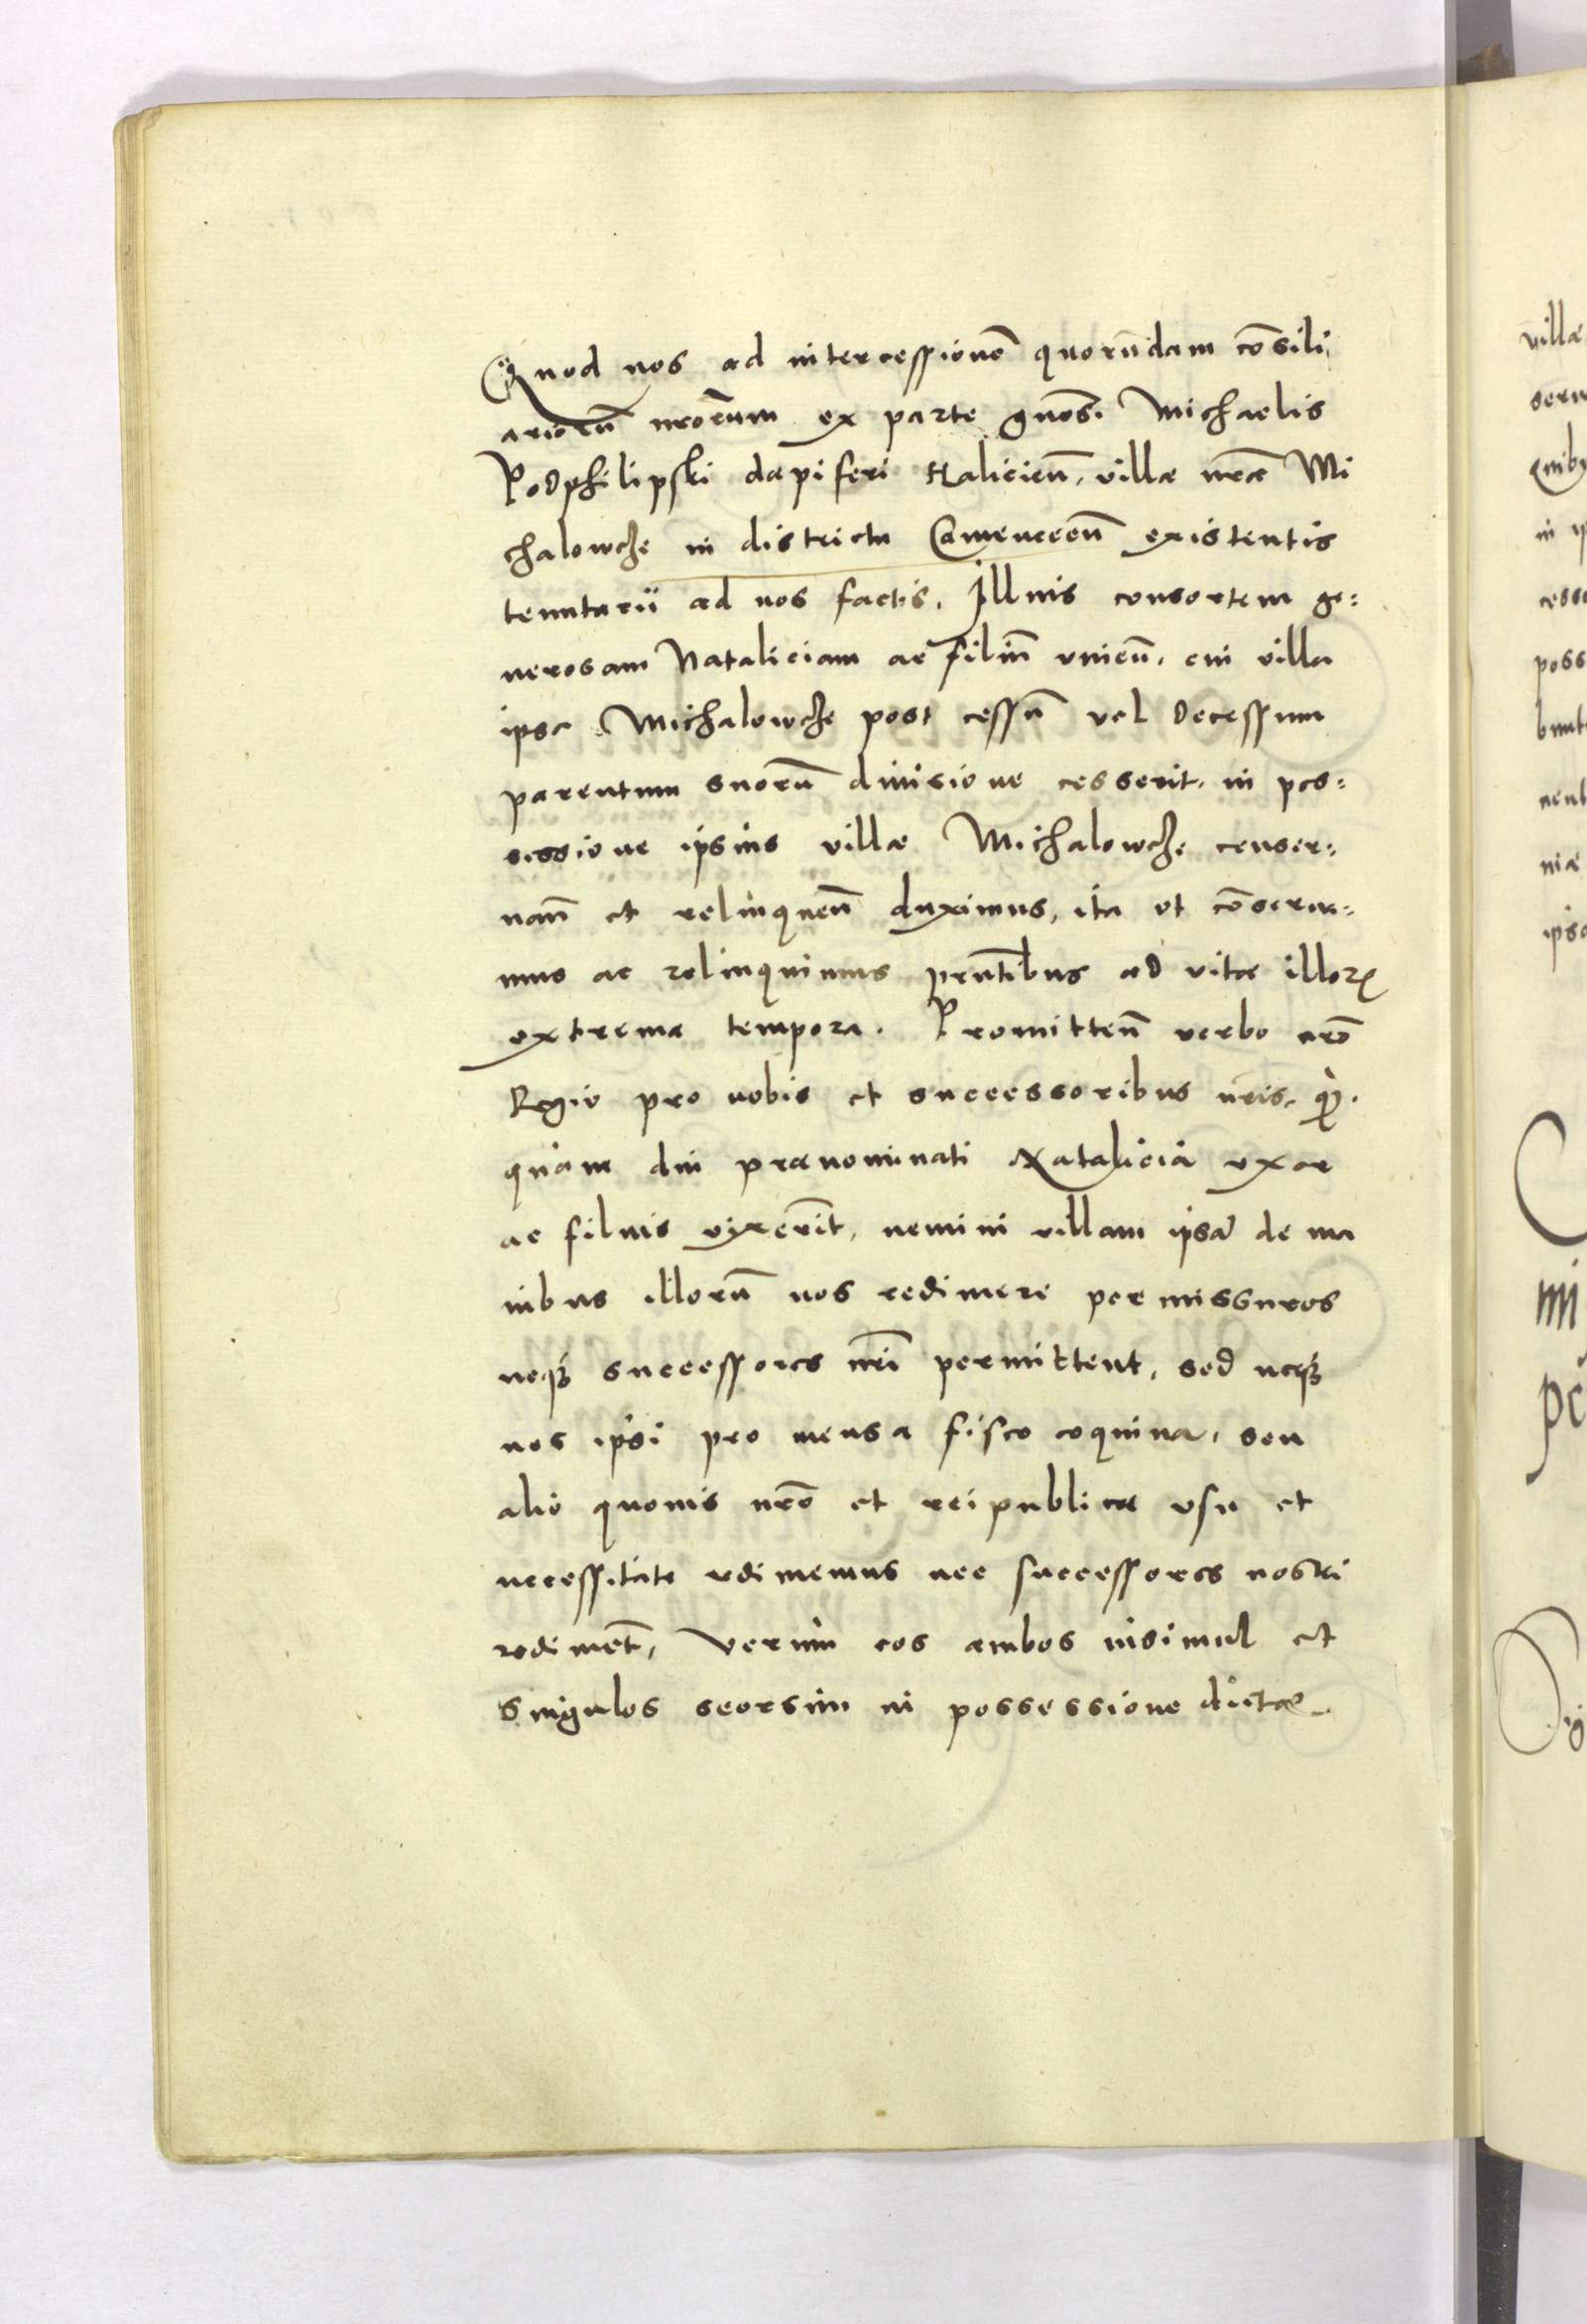 Quod nos ad intercessionē quorūdam cōsili
ariorū nrōrum ex parte gnōsi Michaelis
Podphilipski dapiferi Halicieñ, villæ nrāe Mi
chalowcze in districtu Cameneceñ existentis
tenutarii ad nos factis. Illius consortem ge=
nerosam Nataliciam ac filiū vnicū, cui villa
ipsa Michalowcze post cessū vel decessum
parentum suorū diuisione cesserit, in pos=
sessione ipsius villæ Michalowcze conser=
uañ et relinqueñ duximus, ita vt cōserua=
mus ac relinquimus pn̄tibus ad vitæ illorꝝ
extrema tempora. Promitteñ verbo nrō
Regio pro nobis et successoribus nr̄is, ꝙ
quam diu prænominati Natalicia vxor
ac filius vixerīt, nemini villam ipsā de ma
nibus illorū nos redimere permissuros
neqꝫ successores nrī permittent, sed neqꝫ
nos ipsi pro mensa fisco coquina, seu
alio quouis nrō et reipublicæ vsu et
necessitate redimemus nec successores nostri
redimēt, verum eos ambos insimul et
singulos seorsim in possessione dictæ